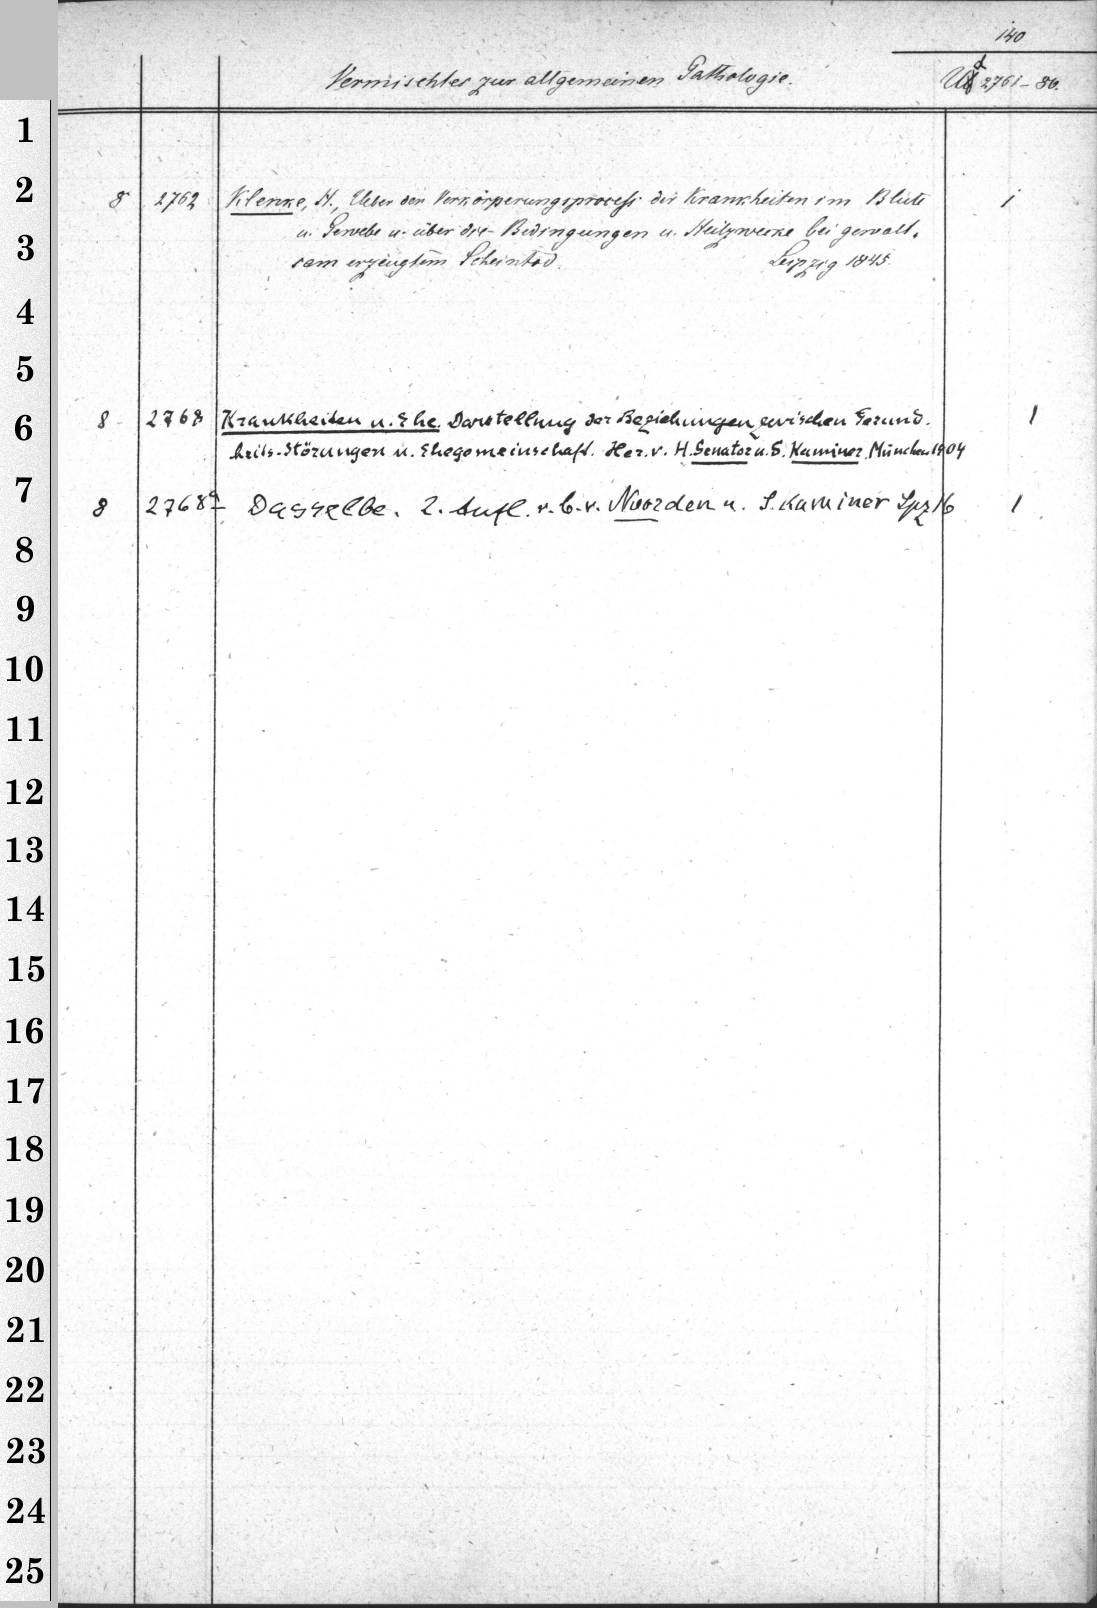 140
Vermischtes zur allgemeinen Pathologie. 2761-80.
1
2 8 2762 Klenke, H., Ueber den Verkörperungsprocess der Krankheiten im Blute 1
u. Gewebe u. über die Bedingungen u. Heilzwecke bei gewalt-
3 sam erzeugtem Scheintod. Leipzig 1845.
4
5
6 8 2768 Krankheiten u. Ehe. Darstellung der Beziehungen zwischen Gesund- 1
heits-Störungen u. Ehegemeinschaft. Her. v. H. Senator u. S. Kaminer. München 1904
7 8 2768a Dasselbe. 2. Aufl. v. C. v. Noorden u. S. Kaminer Lpz 16 1
8
9
10
11
12
13
14
15
16
17
18
19
20
21
22
23
24
25